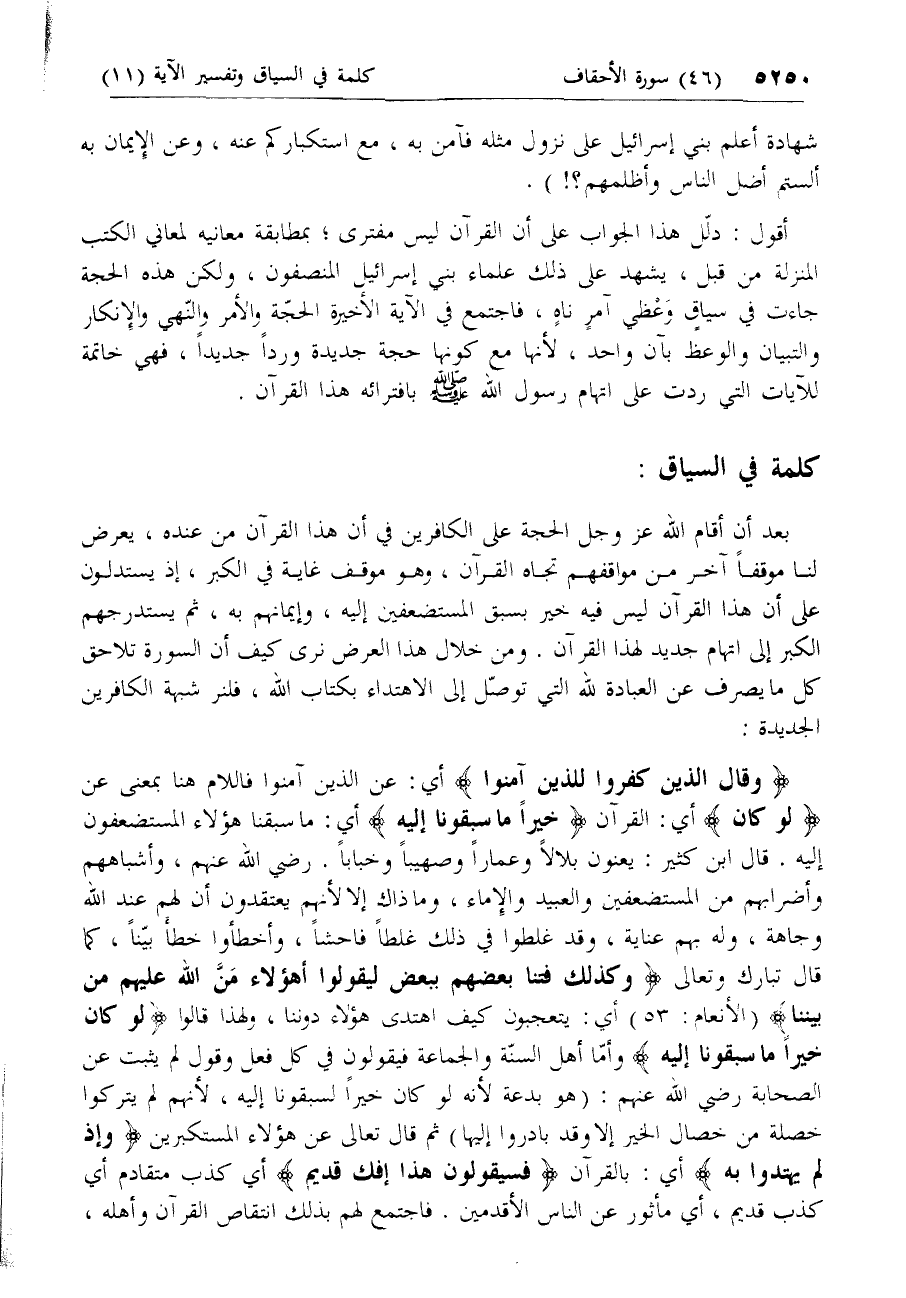 ٥٢٥٠ (٤٦) سورة الأحقاف كلمة في السياق وتفسير الآية (١١)
شهادة أعلم بني إسرائيل على نزول مثله فآمن به ، مع استكباركم عنه ، وعن الإيمان به
ألستم أضل الناس وأظلمهم؟! ) .
أقول : دلّل هذا الجواب على أن القرآن ليس مفترى ؛ بمطابقة معانيه لمعاني الكتب
المنزلة من قبل ، يشهد على ذلك علماء بني إسرائيل المنصفون ، ولكن هذه الحجة
جاءت في سياقٍ وَعْظي آمرٍ ناهٍ ، فاجتمع في الآية الأخيرة الحجّة والأمر والنّهي والإنكار
والتبيان والوعظ بآن واحد ، لأنها مع كونها حجة جديدة ورداً جديداً ، فهي خاتمة
للآيات التي ردت على اتهام رسول الله ﷺ بافترائه هذا القرآن .
كلمة في السياق :
بعد أن أقام الله عز وجل الحجة على الكافرين في أن هذا القرآن من عنده ، يعرض
لنا موقفاً آخر من مواقفهم تجاه القرآن ، وهو موقف غاية في الكبر ، إذ يستدلون
على أن هذا القرآن ليس فيه خير بسبق المستضعفين إليه ، وإيمانهم به ، ثم يستدرجهم
الكبر إلى اتهام جديد لهذا القرآن . ومن خلال هذا العرض نرى كيف أن السورة تلاحق
كل مايصرف عن العبادة لله التي توصّل إلى الاهتداء بكتاب الله ، فلنر شبهة الكافرين
الجديدة :
﴿ وقال الذين كفروا للذين آمنوا ﴾ أي: عن الذين آمنوا فاللام هنا بمعنى عن
﴿ لو كان ﴾ أي: القرآن ﴿ خيراً ماسبقونا إليه ﴾ أي: ماسبقنا هؤلاء المستضعفون
إليه . قال ابن كثير : يعنون بلالاً وعماراً وصهيباً وخباباً . رضي الله عنهم ، وأشباههم
وأضرابهم من المستضعفين والعبيد والإماء ، وماذاك إلا لأنهم يعتقدون أن لهم عند الله
وجاهة ، وله بهم عناية ، وقد غلطوا في ذلك غلطاً فاحشاً ، وأخطأوا خطأ بيّناً ، كما
قال تبارك وتعالى ﴿ وكذلك فتنا بعضهم ببعض ليقولوا أهؤلاء مَنَّ الله عليهم من
بيننا﴾ (الأنعام: ٥٣) أي: يتعجبون كيف اهتدى هؤلاء دوننا ، ولهذا قالوا ﴿لو كان
خيراً ماسبقونا إليه ﴾ وأمّا أهل السنّة والجماعة فيقولون في كل فعل وقول لم يثبت عن
الصحابة رضي الله عنهم : (هو بدعة لأنه لو كان خيراً لسبقونا إليه ، لأنهم لم يتركوا
خصلة من خصال الخير إلاوقد بادروا إليها) ثم قال تعالى عن هؤلاء المستكبرين ﴿ وإذ
لم يهتدوا به ﴾ أي : بالقرآن ﴿ فسيقولون هذا إفك قديم ﴾ أي كذب متقادم أي
كذب قديم ، أي مأثور عن الناس الأقدمين . فاجتمع لهم بذلك انتقاص القرآن وأهله ،